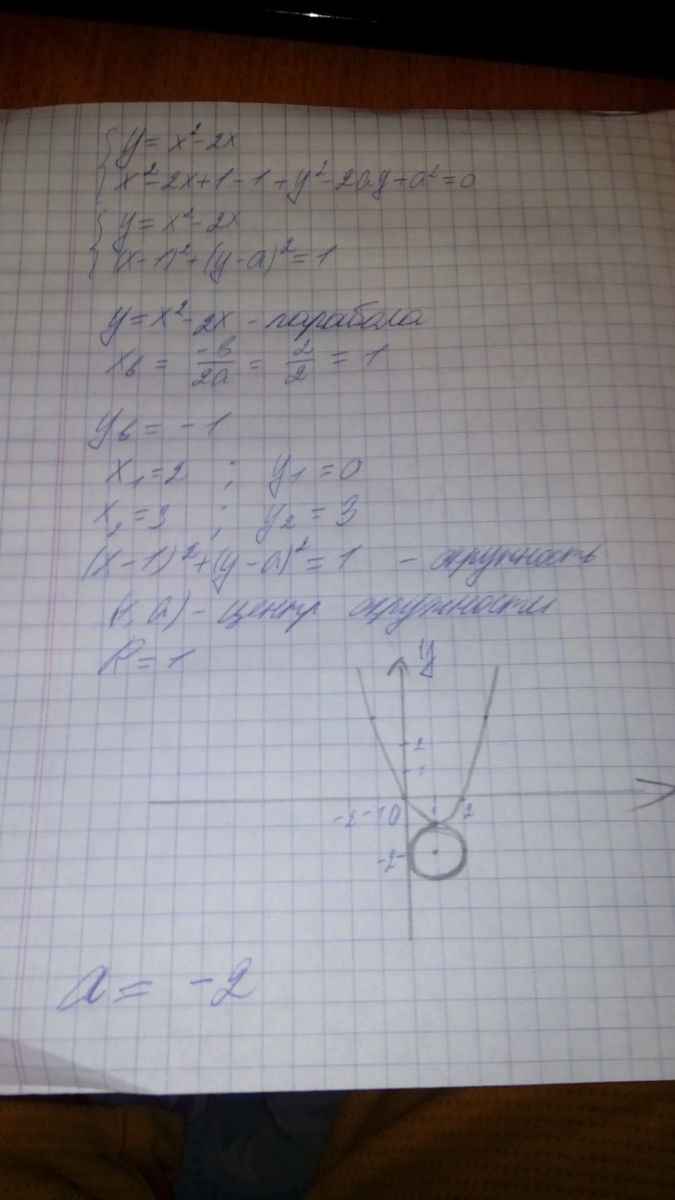 { y = x² - 2x
{ x² - 2x + 1 - 1 + y² - 2ay + a² = 0
{ y = x² - 2x
{ (x-1)² + (y-a)² = 1
y = x² - 2x - парабола
xв = -в/2a = 2/2 = 1
yв = -1
x₁ = 2 ; y₁ = 0
x₂ = 3 ; y₂ = 3
(x-1)² + (y-a)² = 1 - окружность
(1, a) - центр окружности
R = 1
y
2
1
-2 -1 0 1 2
-2
a = -2